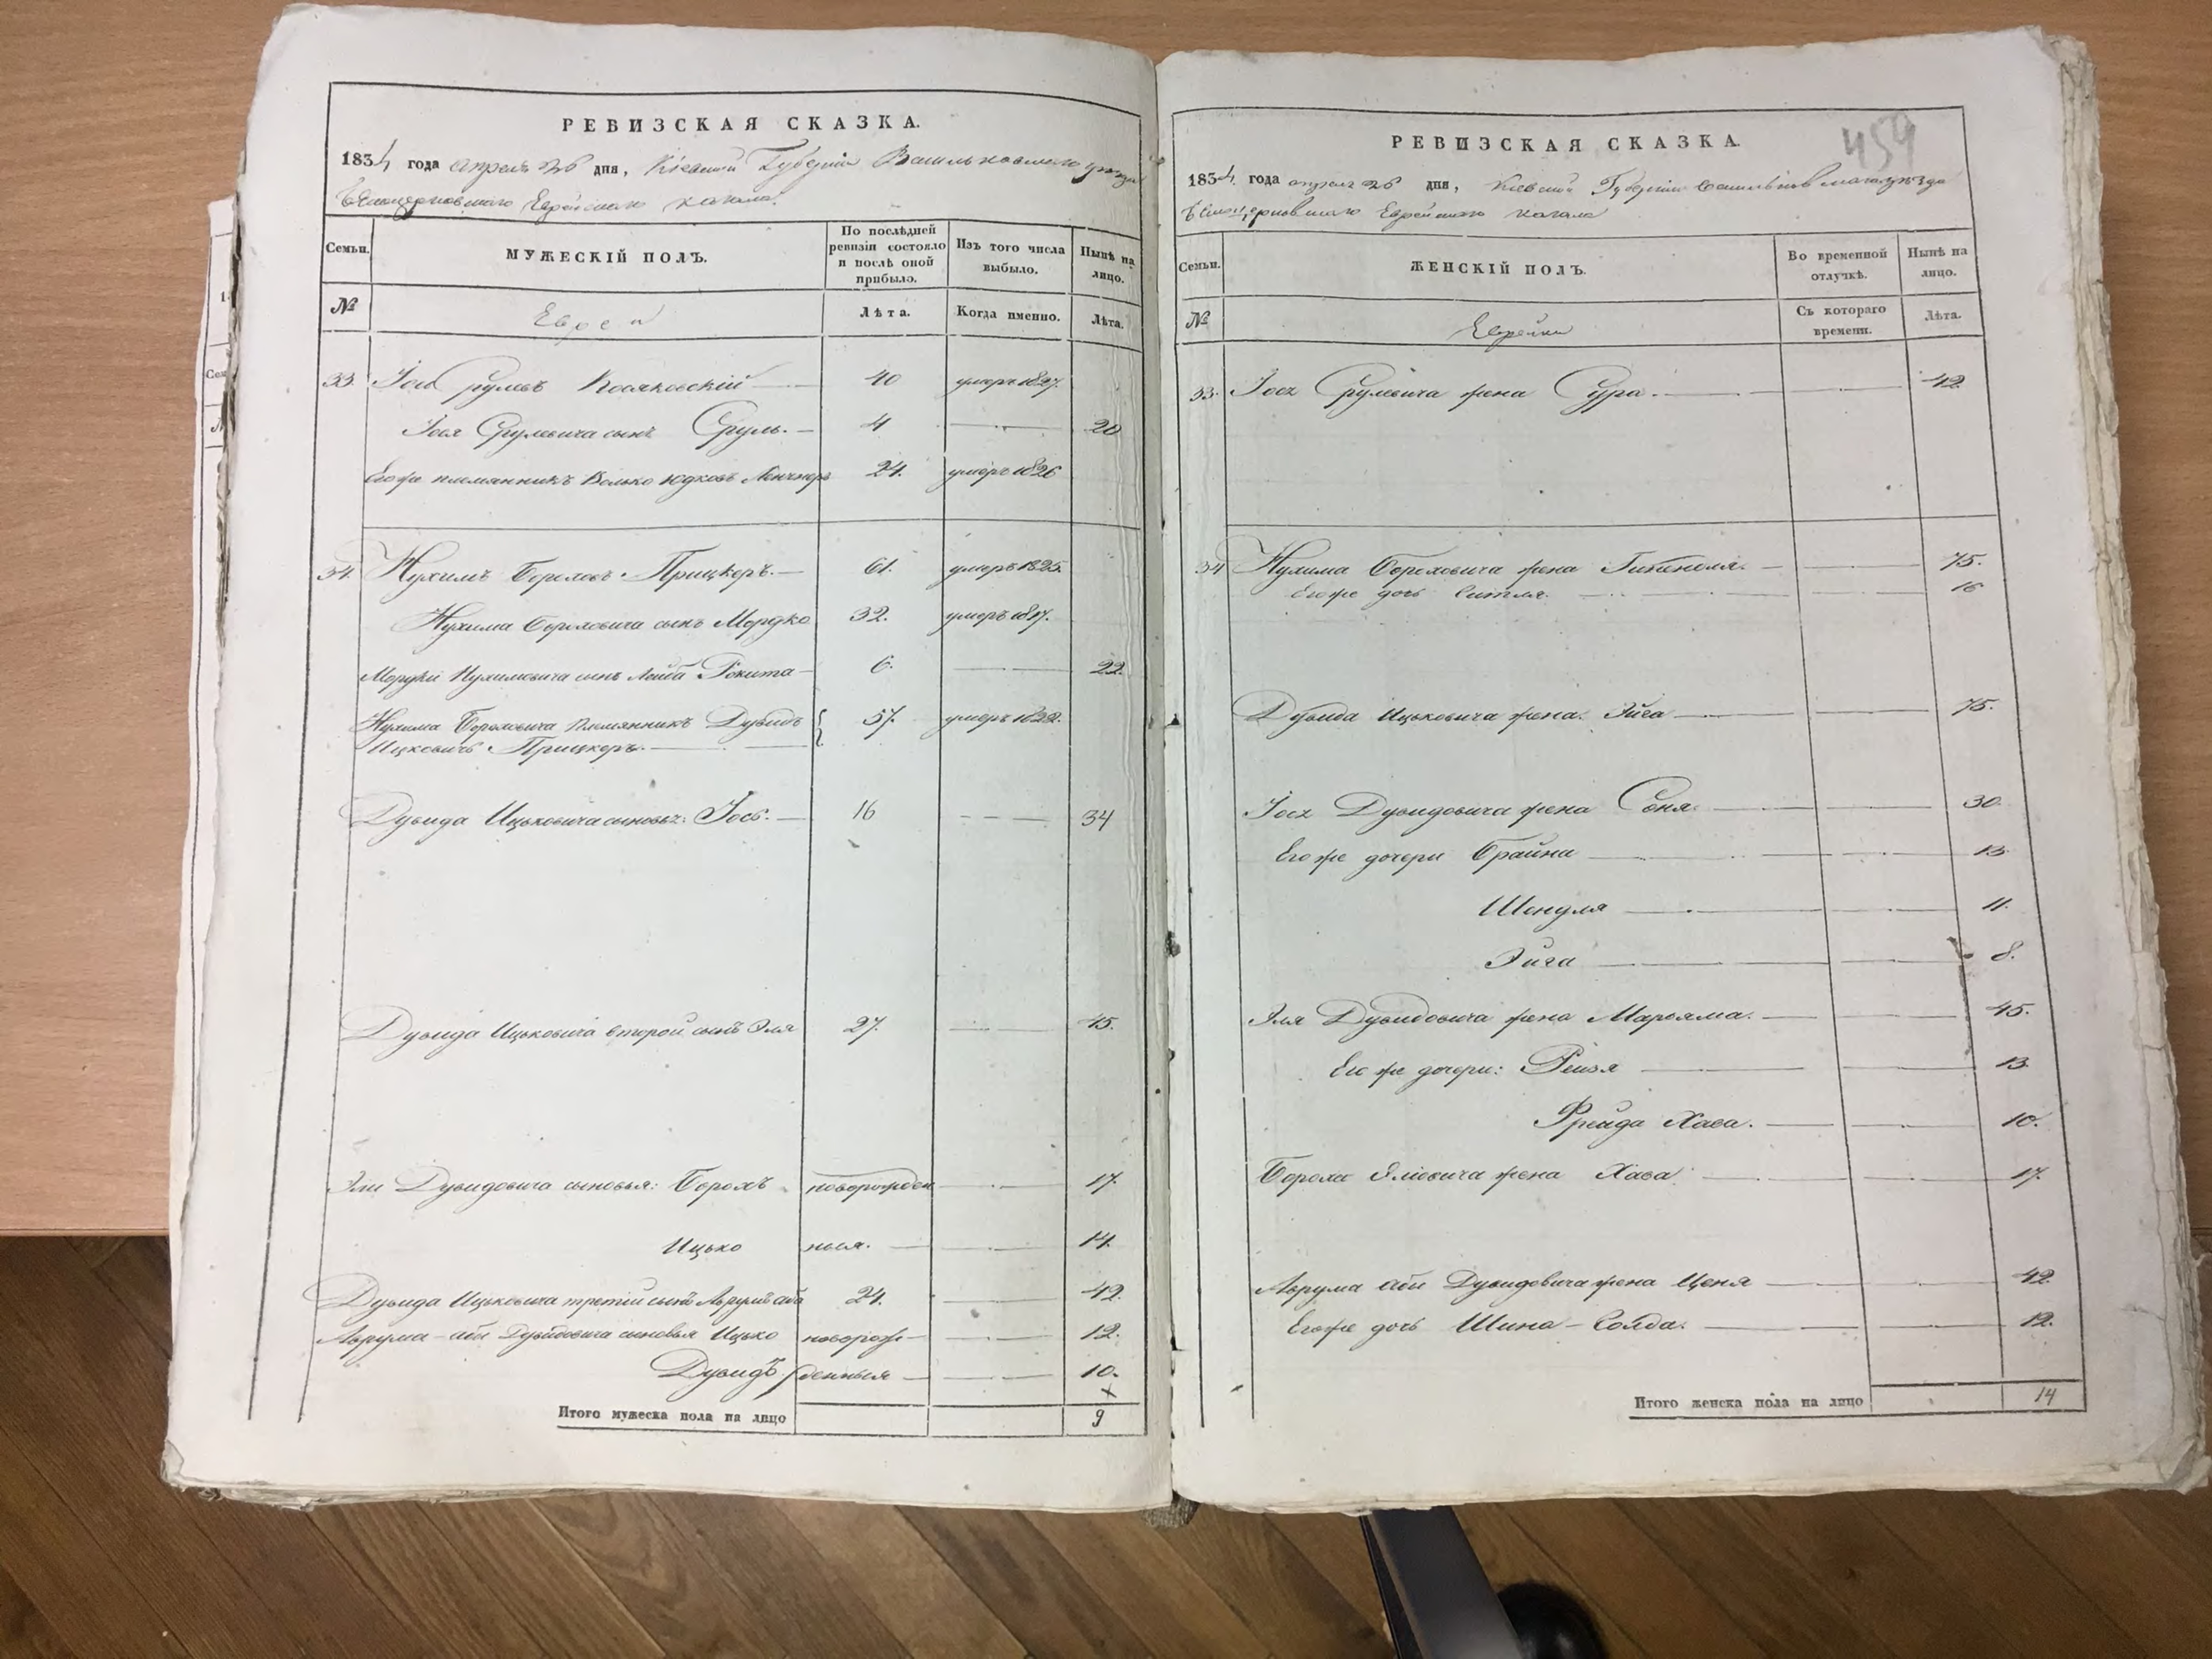 РЕВИЗСКАЯ СКАЗКА.
1834 года апреля 26 дня, Кіевской Губерніи Васильковскаго уезда
Белоцерковскаго Еврейскаго кагала.
Семьи.
МУЖЕСКІЙ ПОЛЪ.
По послѣдней ревизіи состояло и послѣ оной прибыло.
Изъ того числа выбыло.
Нынѣ на лицо.
№
Евреи
Лѣта.
Когда именно.
Лѣта.
33. Іось Срулевъ 40 умеръ 1827.
Іося Срулевича сынъ Сруль. 4 20
Его же племянникъ Волько Юдковъ 24. умеръ 1826
34. Нухимъ Бороховъ Прицкеръ. 61. умеръ 1825.
Нухима Бороховича сынъ Мордко 32. умеръ 1817.
Мордки Нухимовича сынъ Лейба Рокита 6. 22.
Нухима Бороховича племянникъ Дувидъ 57. умеръ 1822.
Ицковичъ Прицкеръ.
Дувида Ицьковича сыновья: Іось. 16 34
Дувида Ицьковича второй сынъ Эля 27. 45.
Эли Дувидовича сыновья: Борохъ новорожден 17.
Ицько ныя. 14.
Дувида Ицьковича третій сынъ Аврумъ аба 24. 42.
Аврума-аби Дувидовича сыновья Ицько новорож- 12.
Дувидъ денныя 10.
Итого мужеска пола на лицо 9
459
РЕВИЗСКАЯ СКАЗКА.
1834. года апреля 26 дня, Кіевской Губерніи Васильковскаго уезда
Белоцерковскаго Еврейскаго кагала
Семьи.
ЖЕНСКІЙ ПОЛЪ.
Во временной отлучкѣ.
Нынѣ на лицо.
№
Еврейки
Съ котораго времени.
Лѣта.
33. Іося Срулевича жена Сура. 42
34 Нухима Бороховича жена 75.
Его же дочь 16
Дувида Ицьковича жена. Эйга 75.
Іося Дувидовича жена Соня. 30.
Его же дочери Брайна 13.
Шендля 11.
Эйга 8.
Эля Дувидовича жена Марьяма. 45.
Его же дочери: Рейзя 13.
Фрейда Хава. 10.
Бороха Эліовича жена Хава 17.
Аврума аби Дувидовича жена Ценя 42.
Его же дочь Шина- 12.
Итого женска пола на лицо 14